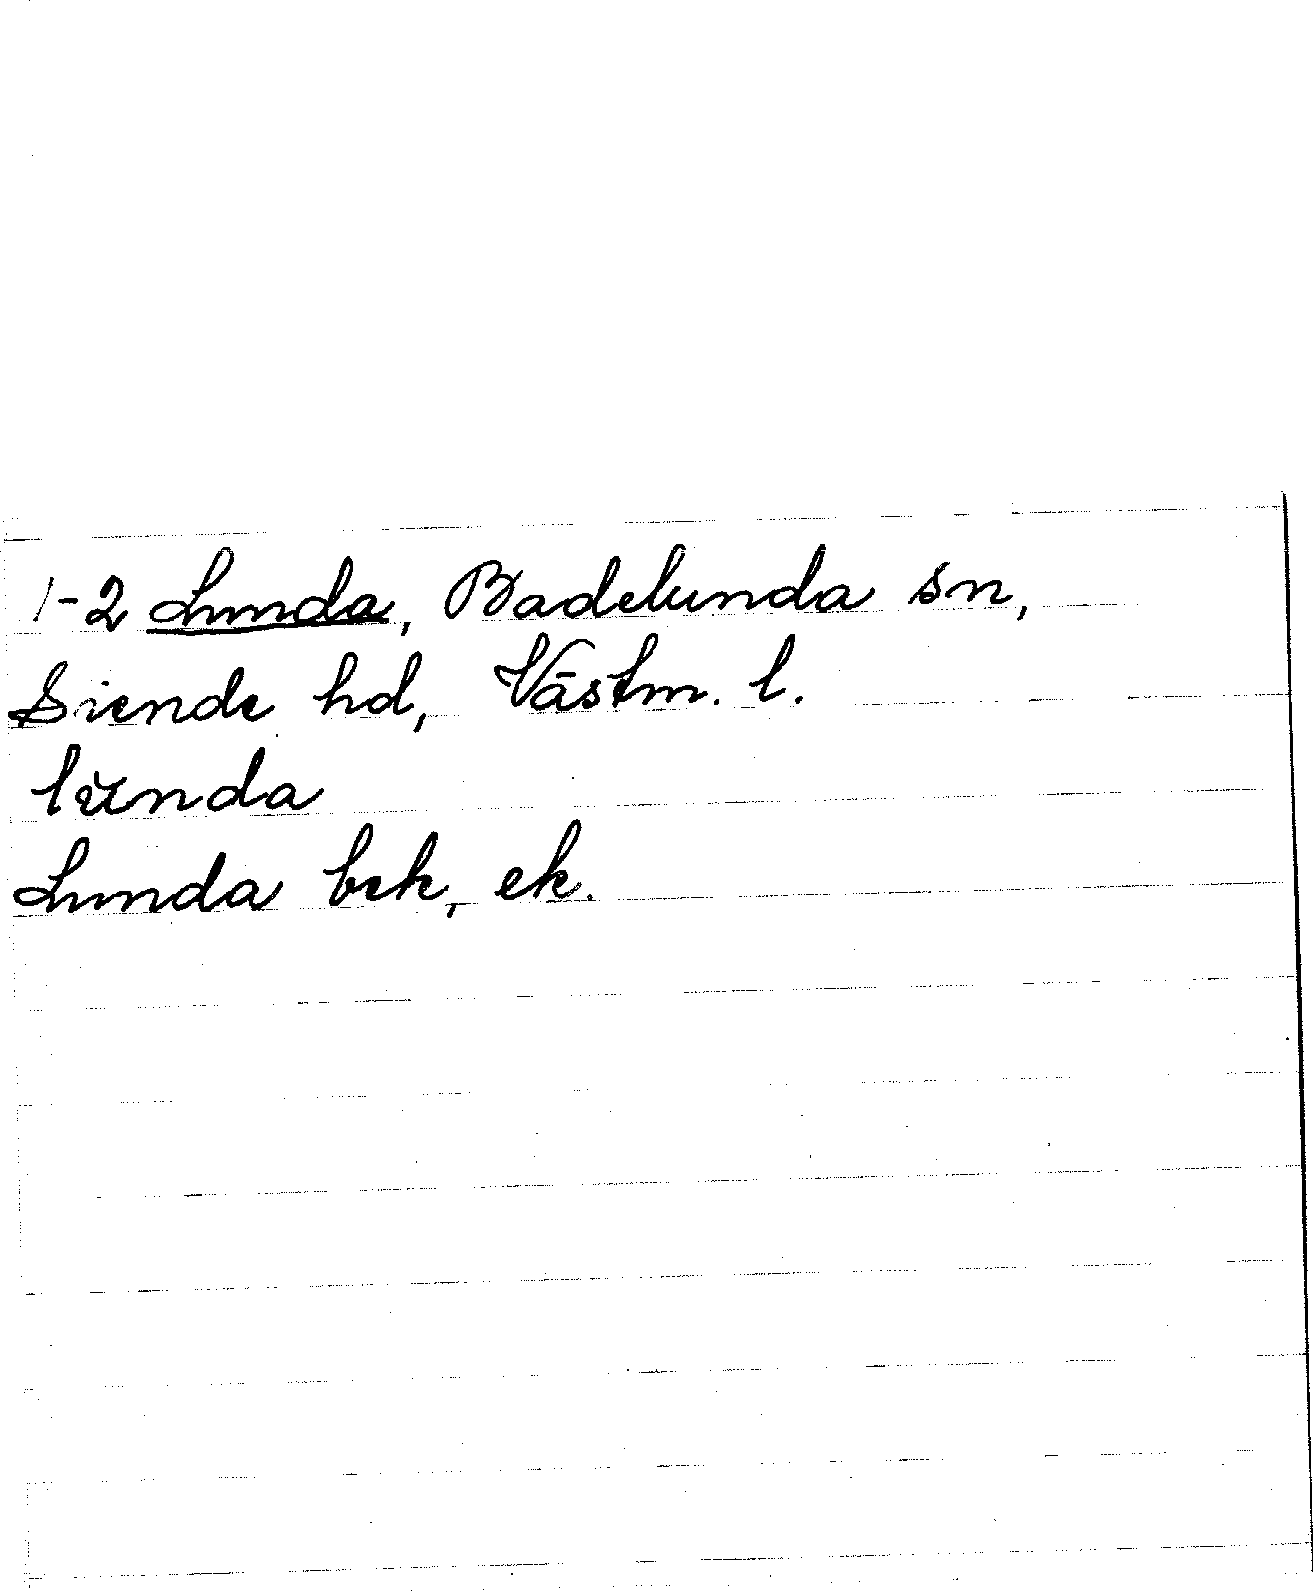 1-2 Lunda, Badelunda sn,
Siende hd, Västm. l.
lŭnda
Lunda bek, ek.